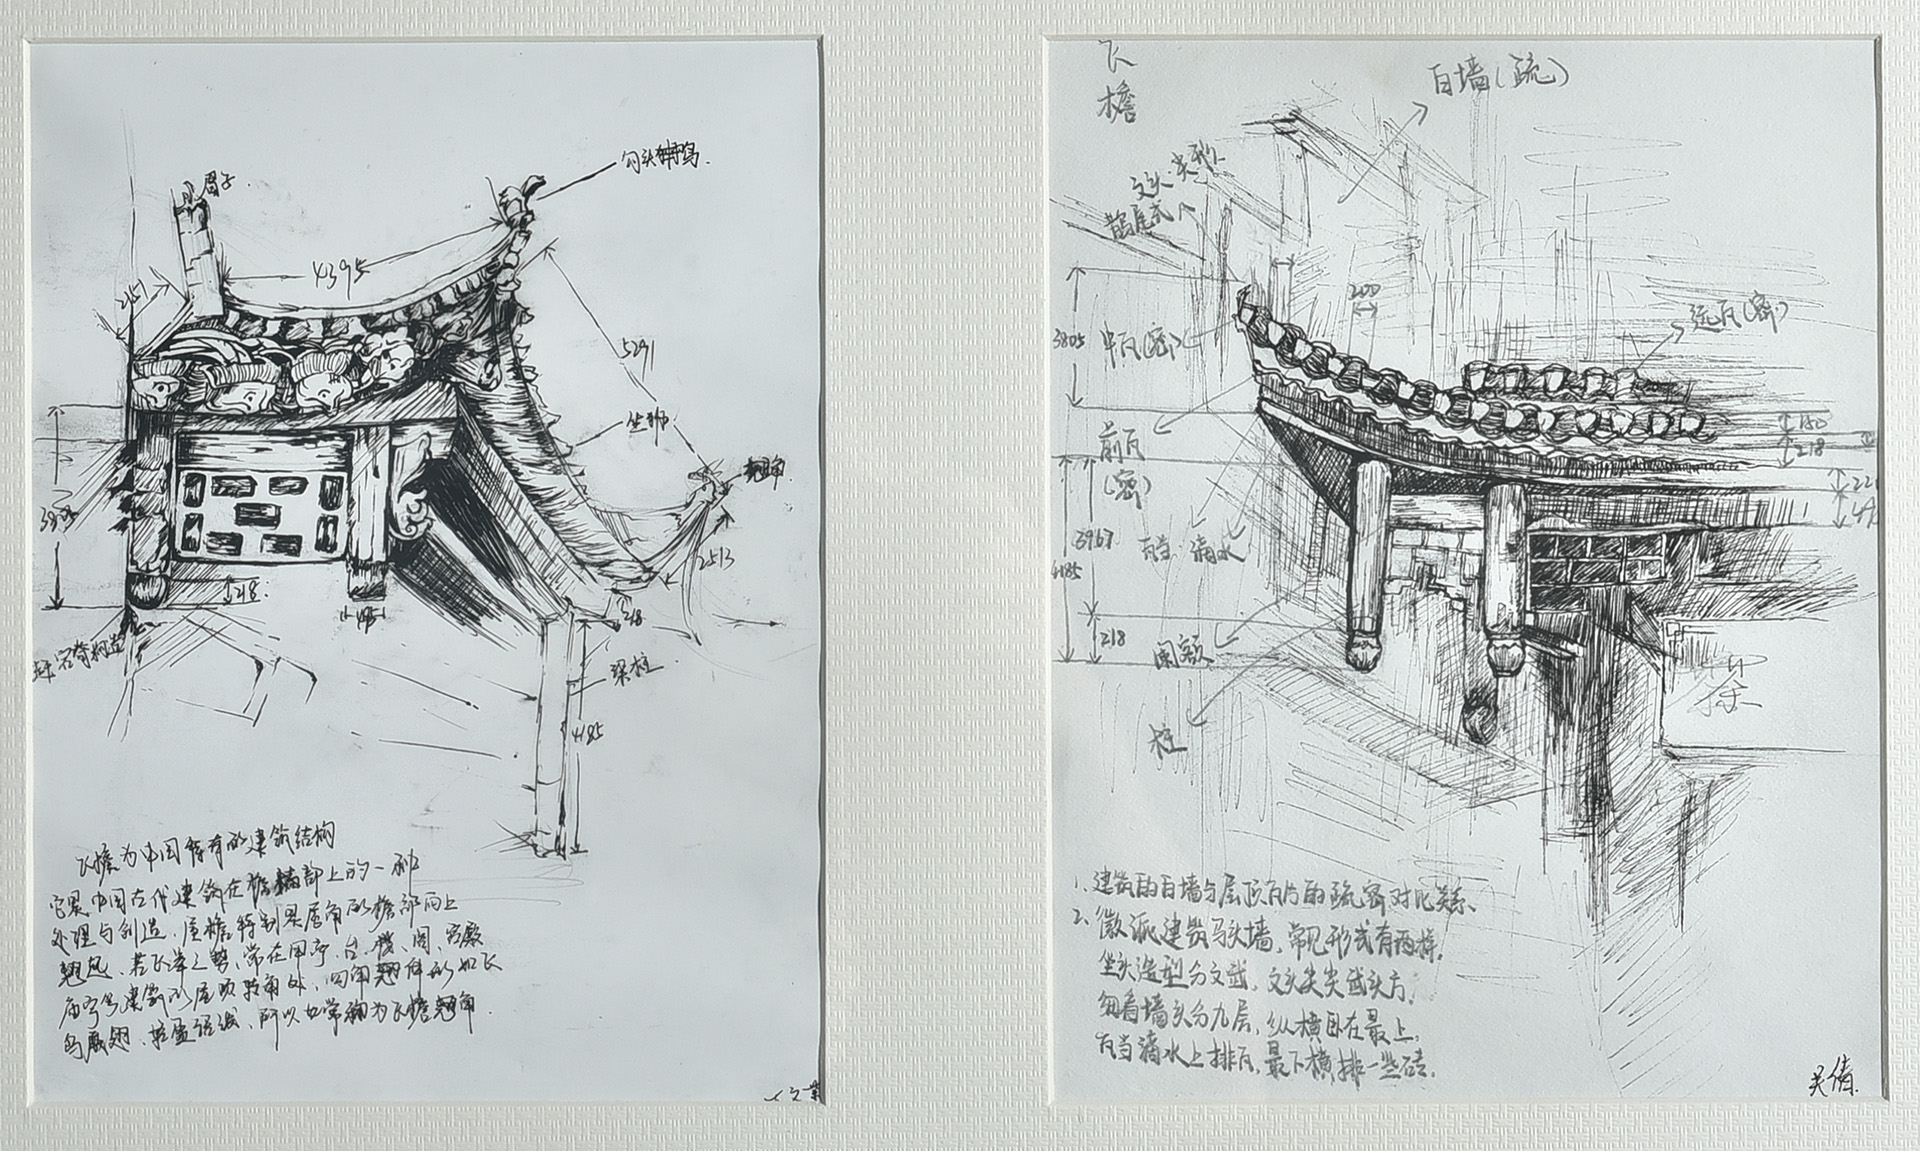 眉子.
4395
5291
坐狮
翘角.
2513
218
218.
495
梁柱.
4185
飞檐为中国特有的建筑结构
它是中国古代建筑在檐部上的一种
处理与创造.屋檐特别是屋角的檐部向上
翘起.若飞举之势,常在用亭、台、楼、阁、宫殿
庙宇等建筑的屋顶转角处,四角翘伸形如飞
鸟展翅.轻盈活泼、所以也常称为飞檐翘角.
飞檐
白墙(疏)
文头:尖形
鹊尾式
200
远瓦(密)
3805
中瓦(密)
前瓦
(密)
150
218
3967
4185
瓦当.滴水
218
阑额
柱
1、建筑的白墙与屋顶瓦片的疏密对比关系、
2、徽派建筑马头墙,常见形式有两样.
坐头造型分文武,文头尖尖武头方.
细看墙头分九层,纵横卧在最上,
瓦当滴水上排瓦,最下横排一些砖.
吴倩.